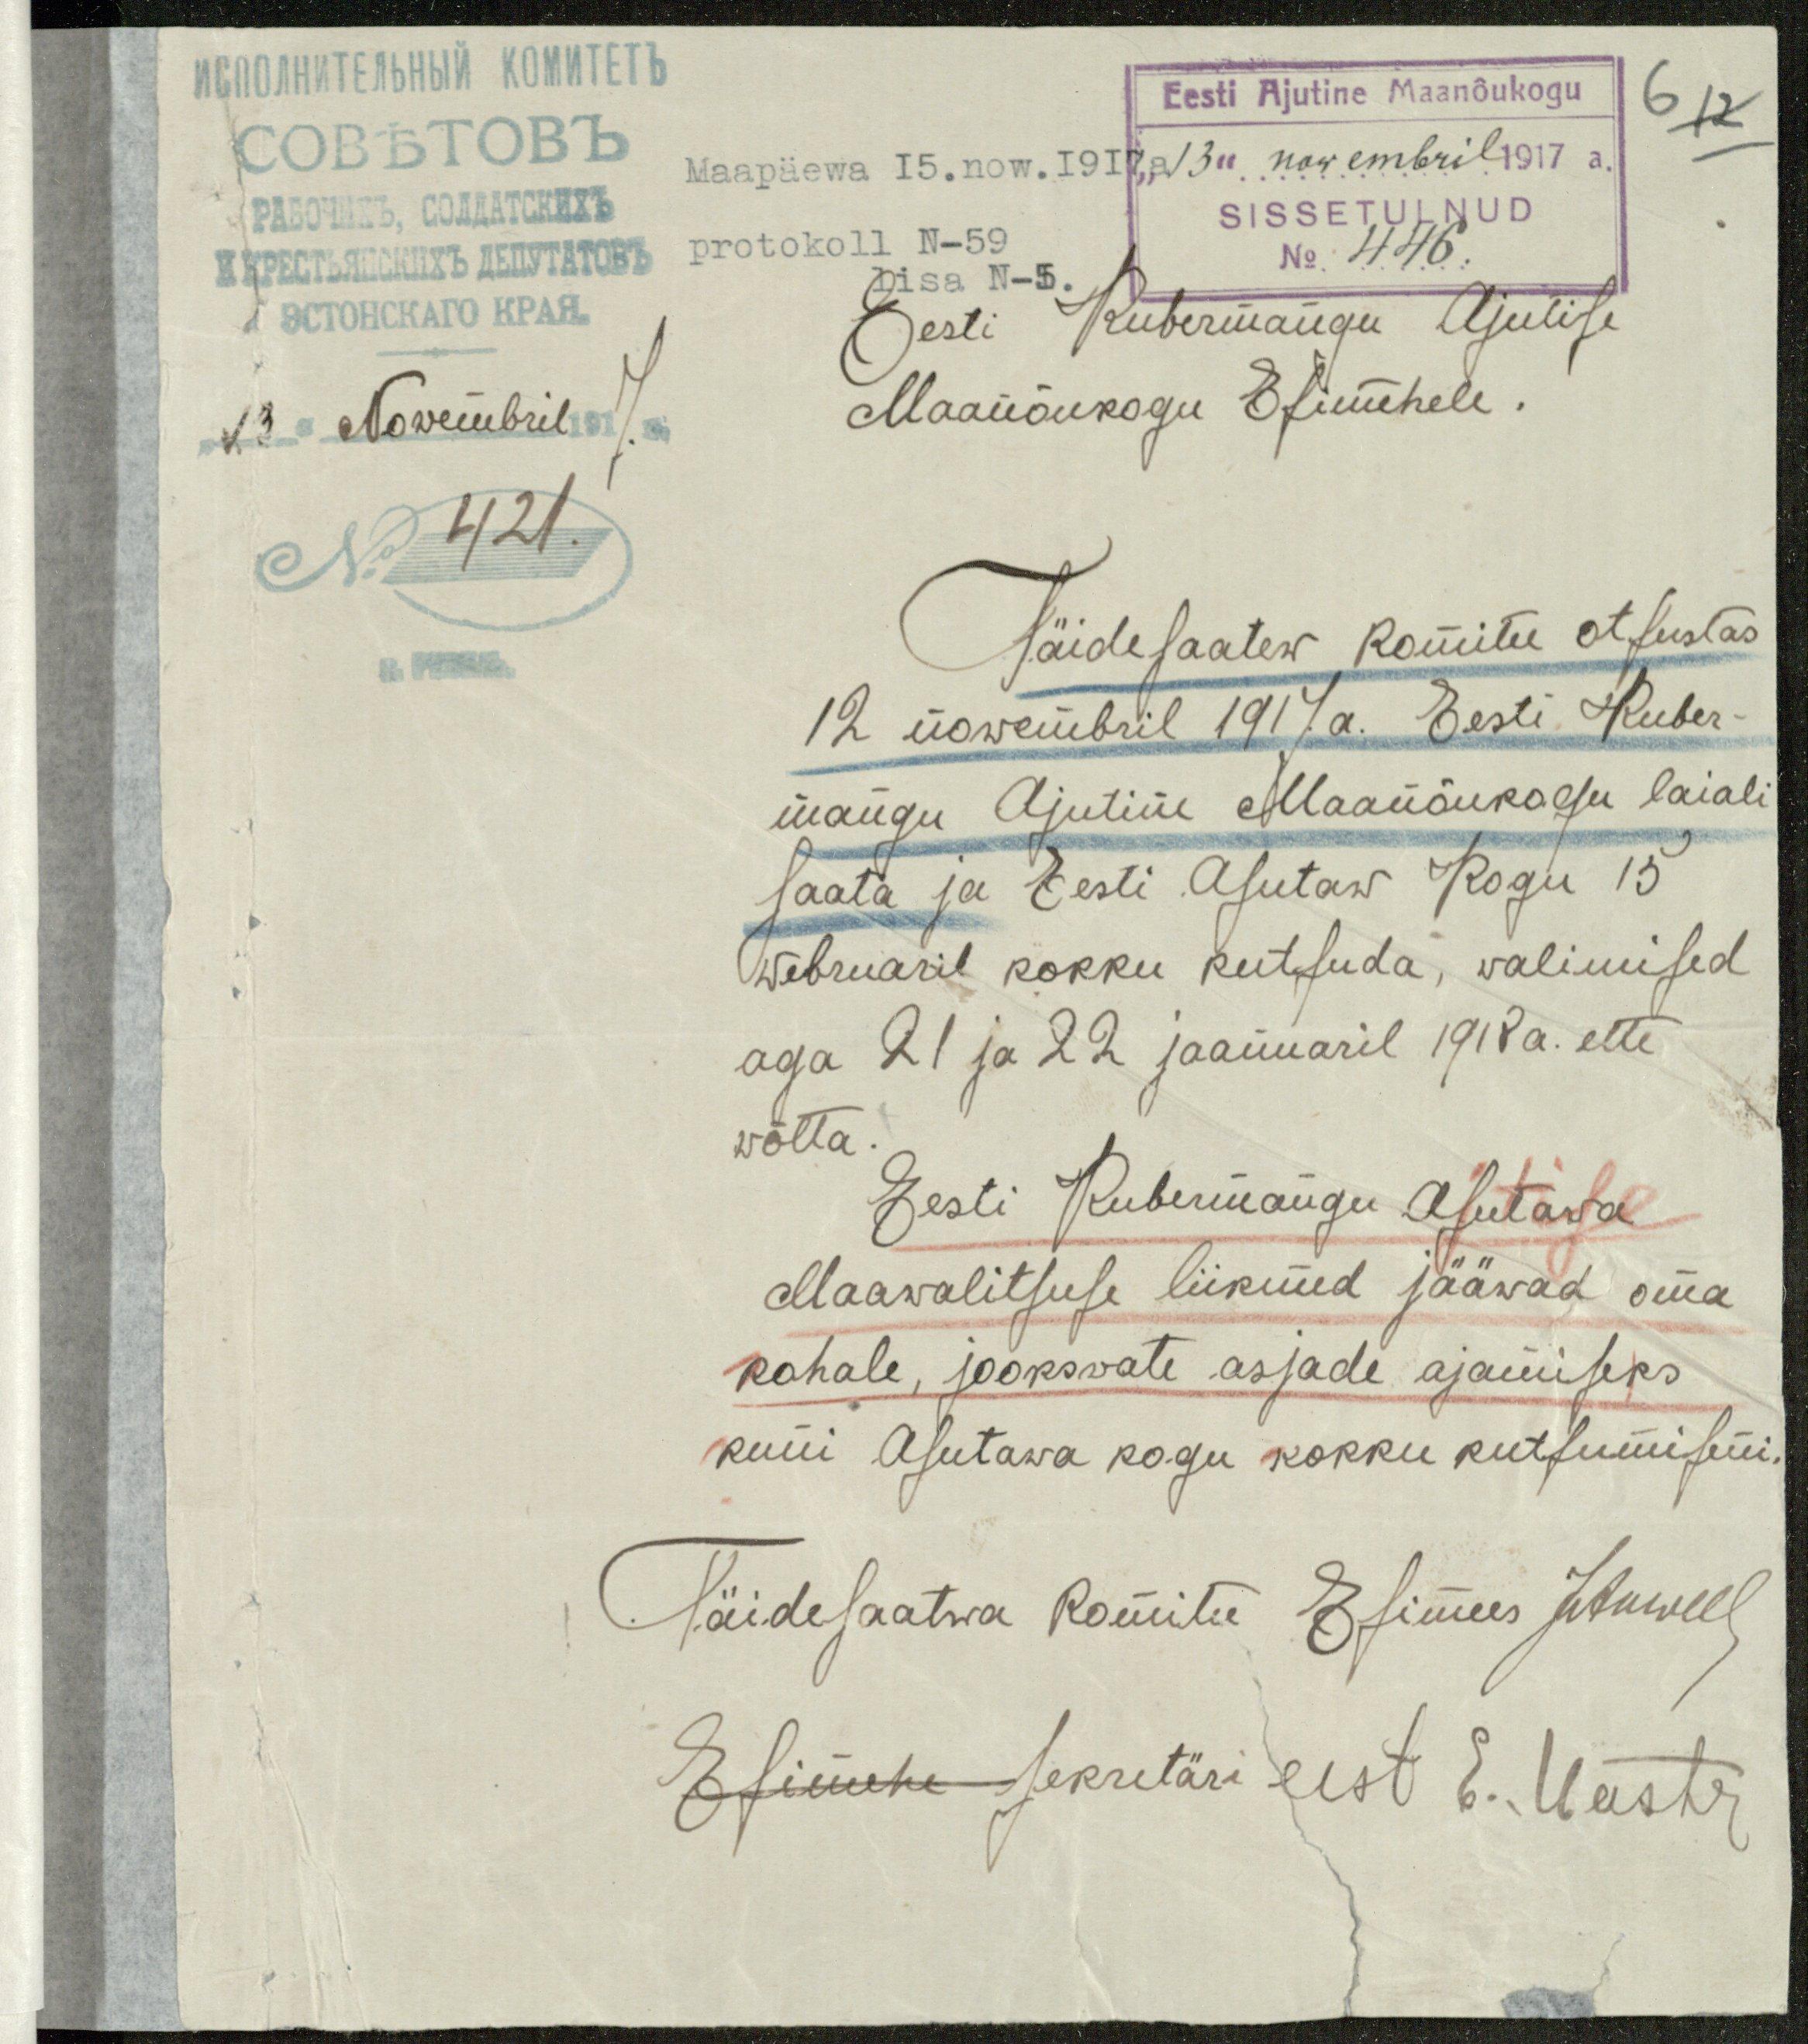 ИСПОЛНИТЕЛЬНЫЙ КОМИТЕТЪ
СОВѢТОВЪ
РАБОЧИХЪ, СОЛДАТСКИХЪ
И КРЕСТЬЯНСКИХЪ ДЕПУТАТОВЪ
ЭСТОНСКАГО КРАЯ.
„13" Nowembril 1917
№ 421.
Maapäewa I5.now.I917.a
protokoll N-59
lisa N-5.
Eesti Ajutine Maanõukogu
„13" nowembril 1917 a.
SISSETULNUD
№ 446.
6 12
Eesti Kubermangu Ajutise
Maanõukogu Esimehele.
Täidesaatew komitee otsustas
12 nowembril 1917.a. Eesti Kuber-
mangu Ajutine Maanõukogu laiali
saata ja Eesti Asutaw Kogu 15
webruaril kokku kutsuda, walimised
aga 21 ja 22 jaanuaril 1918 a. ette
wõtta.
Eesti Kubermangu Asutawa
Maawalitsuse liikmed jääwad oma
kohale, jookswate asjade ajamiseks
kuni Asutawa kogu kokku kutsumiseni.
Täidesaatwa komitee Esimees JAnwelt
Esimehe sekretäri eest E.